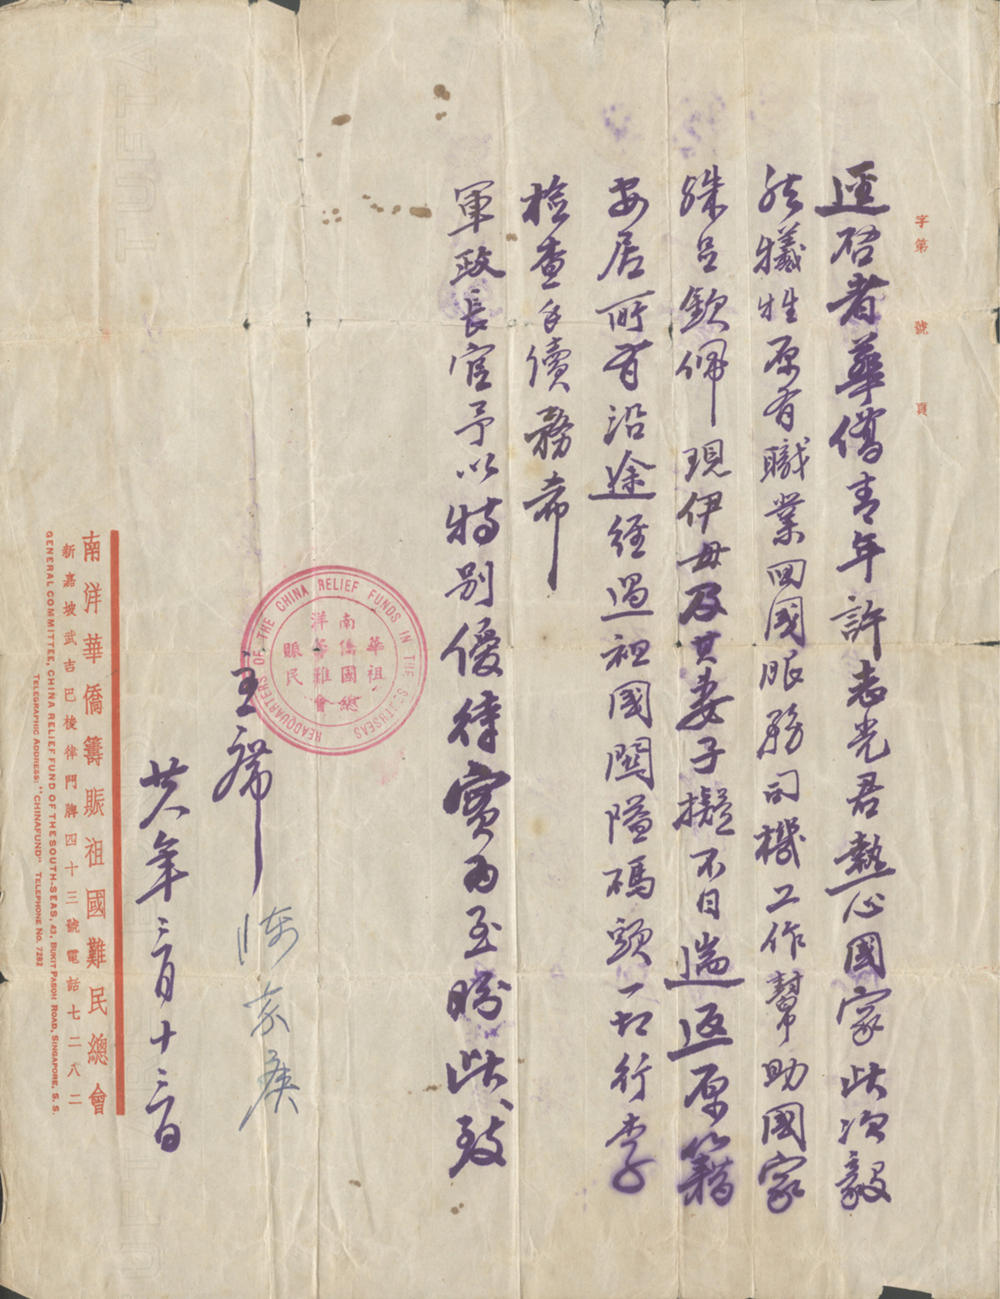 字第　號　頁
逕啓者華僑青年許志光君熱心國家此次毅
然犧牲原有職業回國服務司機工作幫助國家
殊足欽佩現伊母及其妻子擬不日遄返原籍
安居所有沿途經過祖國關隘碼頭一切行李
檢查手續務希
軍政長官予以特別優待實為至盼此致
主席
陳嘉庚
廿八年三月十三日
南洋華僑籌賑祖國難民總會
新嘉坡武吉巴梭律門牌四十三號電話七二八二
GENERAL COMMITTEE, CHINA RELIEF FUND OF THE SOUTH-SEAS, 43, BUKIT PASOH ROAD, SINGAPORE, S. S.
TELEGRAPHIC ADDRESS: "CHINAFUND" TELEPHONE NO. 7282
HEADQUARTERS OF THE CHINA RELIEF FUNDS IN THE SOUTHSEAS
華祖
南僑國總
洋籌難會
賑民